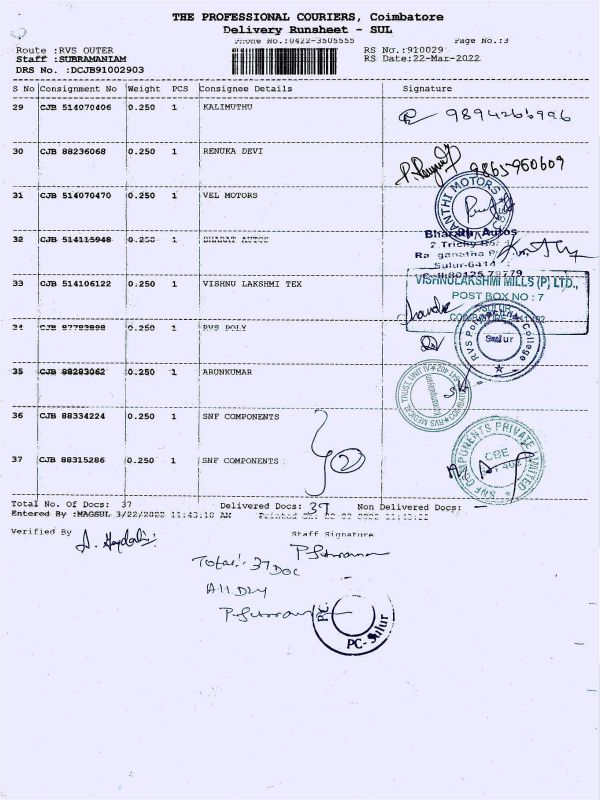 THE PROFESSIONAL COURIERS, Coimbatore
Delivery Runsheet - SUL
Phone No.:0422-3505555 Page No.:3
Route :RVS OUTER RS No.:910029
Staff :SUBRAMANIAM RS Date:22-Mar-2022
DRS No. :DCJB91002903
S No Consignment No Weight PCS Consignee Details Signature
29 CJB 514070406 0.250 1 KALIMUTHU
30 CJB 88236068 0.250 1 RENUKA DEVI 9865960609
31 CJB 514070470 0.250 1 VEL MOTORS
MOTORS
32 CJB 514115948 0.250 1 BHARAT AUTOS
Bharath Autos
2 Trichy
33 CJB 514106122 0.250 1 VISHNU LAKSHMI TEX
VISHNULAKSHMI MILLS (P) LTD.,
POST BOX NO : 7
34 CJB 97793898 0.250 1 RVS POLY
RVS Polytechnic College
Sulur
35 CJB 88283062 0.250 1 ARUNKUMAR
36 CJB 88334224 0.250 1 SNF COMPONENTS
37 CJB 88315286 0.250 1 SNF COMPONENTS
SNF COMPONENTS PRIVATE LIMITED
CBE
Total No. Of Docs: 37 Delivered Docs: 37 Non Delivered Docs: -
Entered By :MAGSUL 3/22/2022 11:43:10 AM
Verified By Staff Signature
Total: 37 Doc
All Dly
PC-Sulur